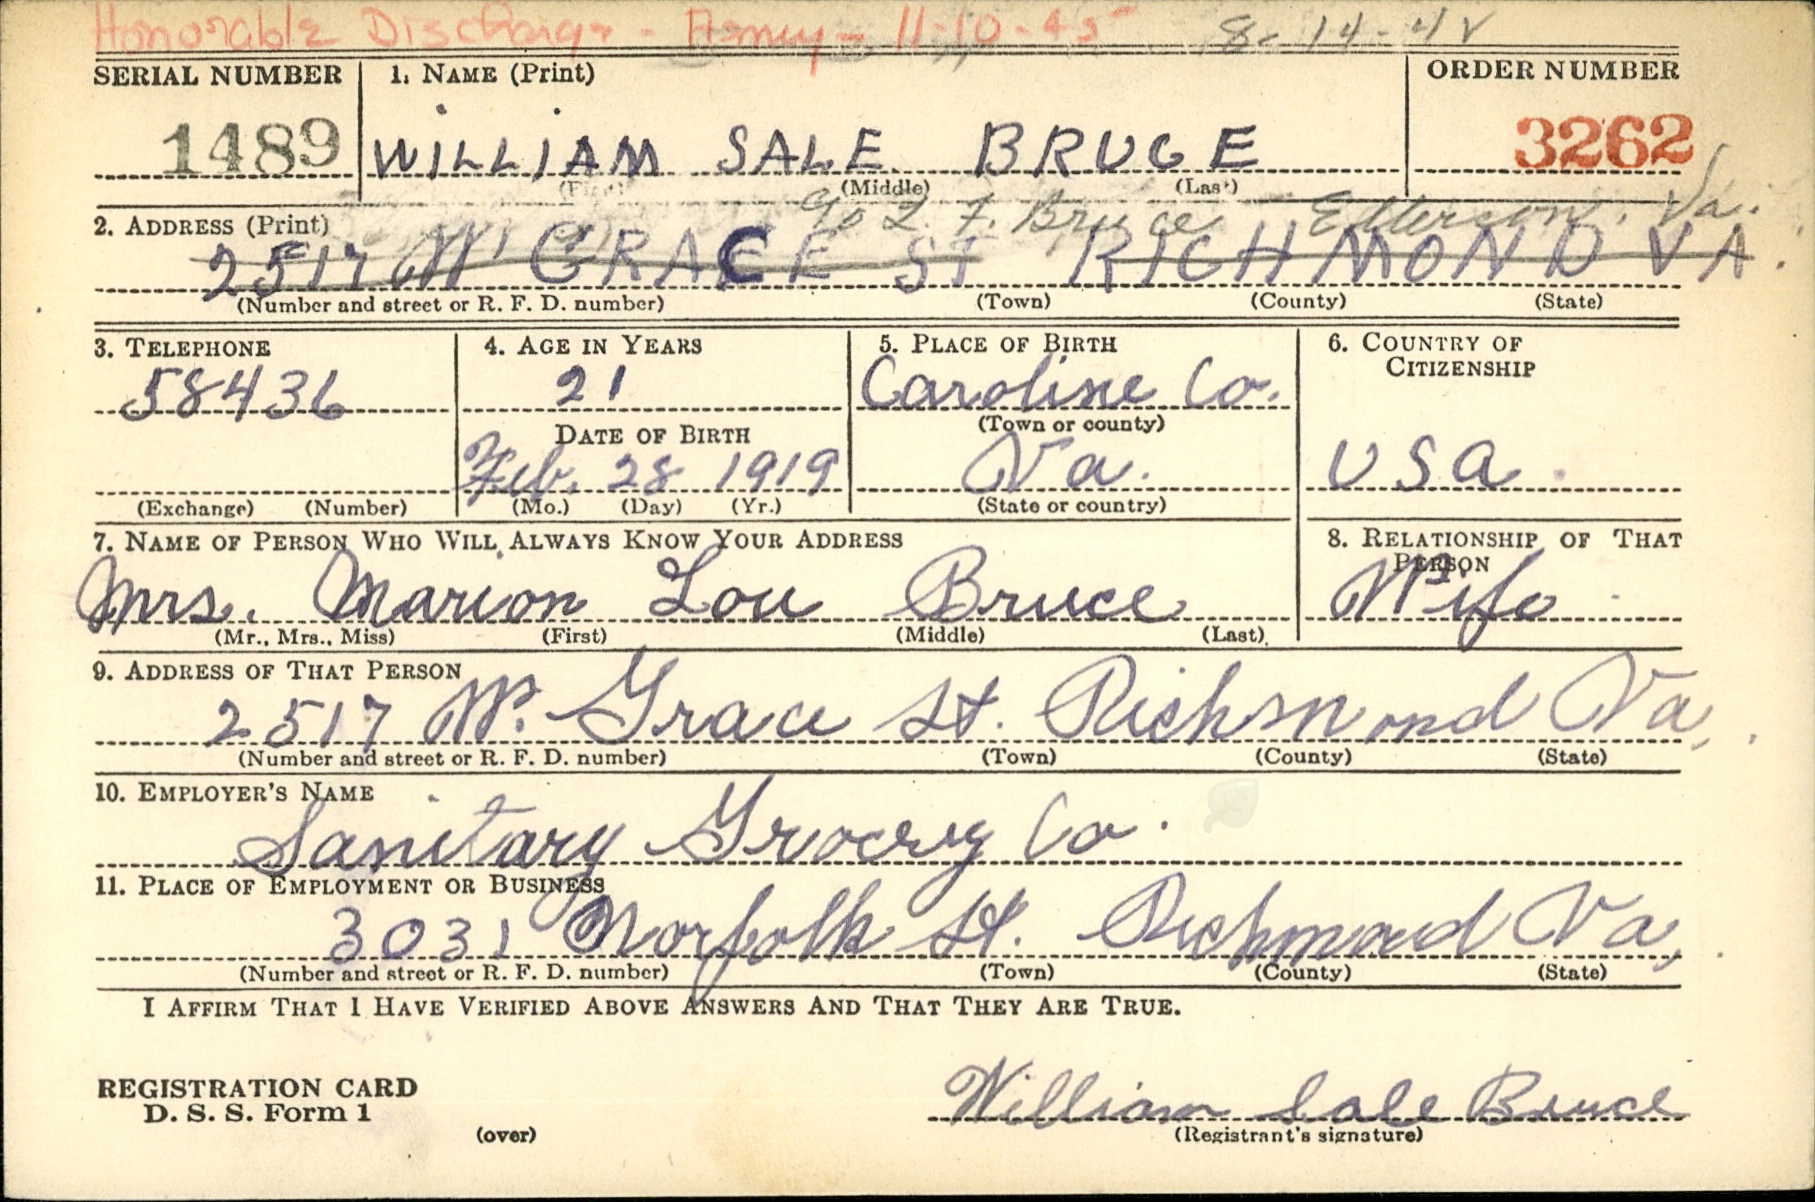 Honorable Discharge - Army - 11-10-45 8-14-42
SERIAL NUMBER 1. NAME (Print) ORDER NUMBER
1489 WILLIAM SALE BRUCE 3262
(First) (Middle) (Last)
L. F. Bruce Va.
2. ADDRESS (Print)
2517 W GRACE ST RICHMOND VA.
(Number and street or R. F. D. number) (Town) (County) (State)
3. TELEPHONE 4. AGE IN YEARS 5. PLACE OF BIRTH 6. COUNTRY OF CITIZENSHIP
58436 21 Caroline Co.
DATE OF BIRTH (Town or county)
Feb. 28 1919 Va. USA
(Exchange) (Number) (Mo.) (Day) (Yr.) (State or country)
7. NAME OF PERSON WHO WILL ALWAYS KNOW YOUR ADDRESS 8. RELATIONSHIP OF THAT PERSON
Mrs. Marion Lou Bruce Wife
(Mr., Mrs., Miss) (First) (Middle) (Last)
9. ADDRESS OF THAT PERSON
2517 W. Grace St. Richmond Va.
(Number and street or R. F. D. number) (Town) (County) (State)
10. EMPLOYER'S NAME
Sanitary Grocery Co.
11. PLACE OF EMPLOYMENT OR BUSINESS
3031 Norfolk St. Richmond Va.
(Number and street or R. F. D. number) (Town) (County) (State)
I AFFIRM THAT I HAVE VERIFIED ABOVE ANSWERS AND THAT THEY ARE TRUE.
REGISTRATION CARD
D. S. S. Form 1 William Sale Bruce
(over) (Registrant's signature)